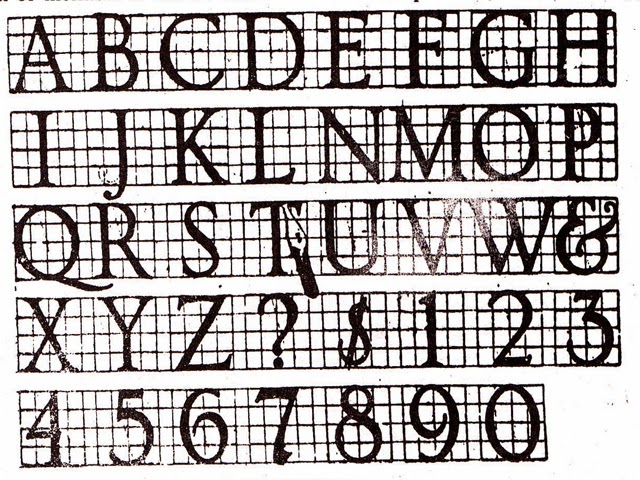 ABCDEFGH
IJKLNMOP
QRSTUVW&
XYZ?$123
4567890